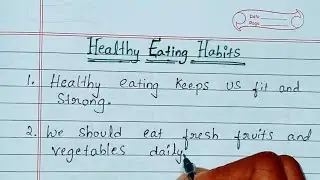 Date
Page
Healthy Eating Habits
1. Healthy eating keeps us fit and
strong.
2. We should eat fresh fruits and
vegetables daily